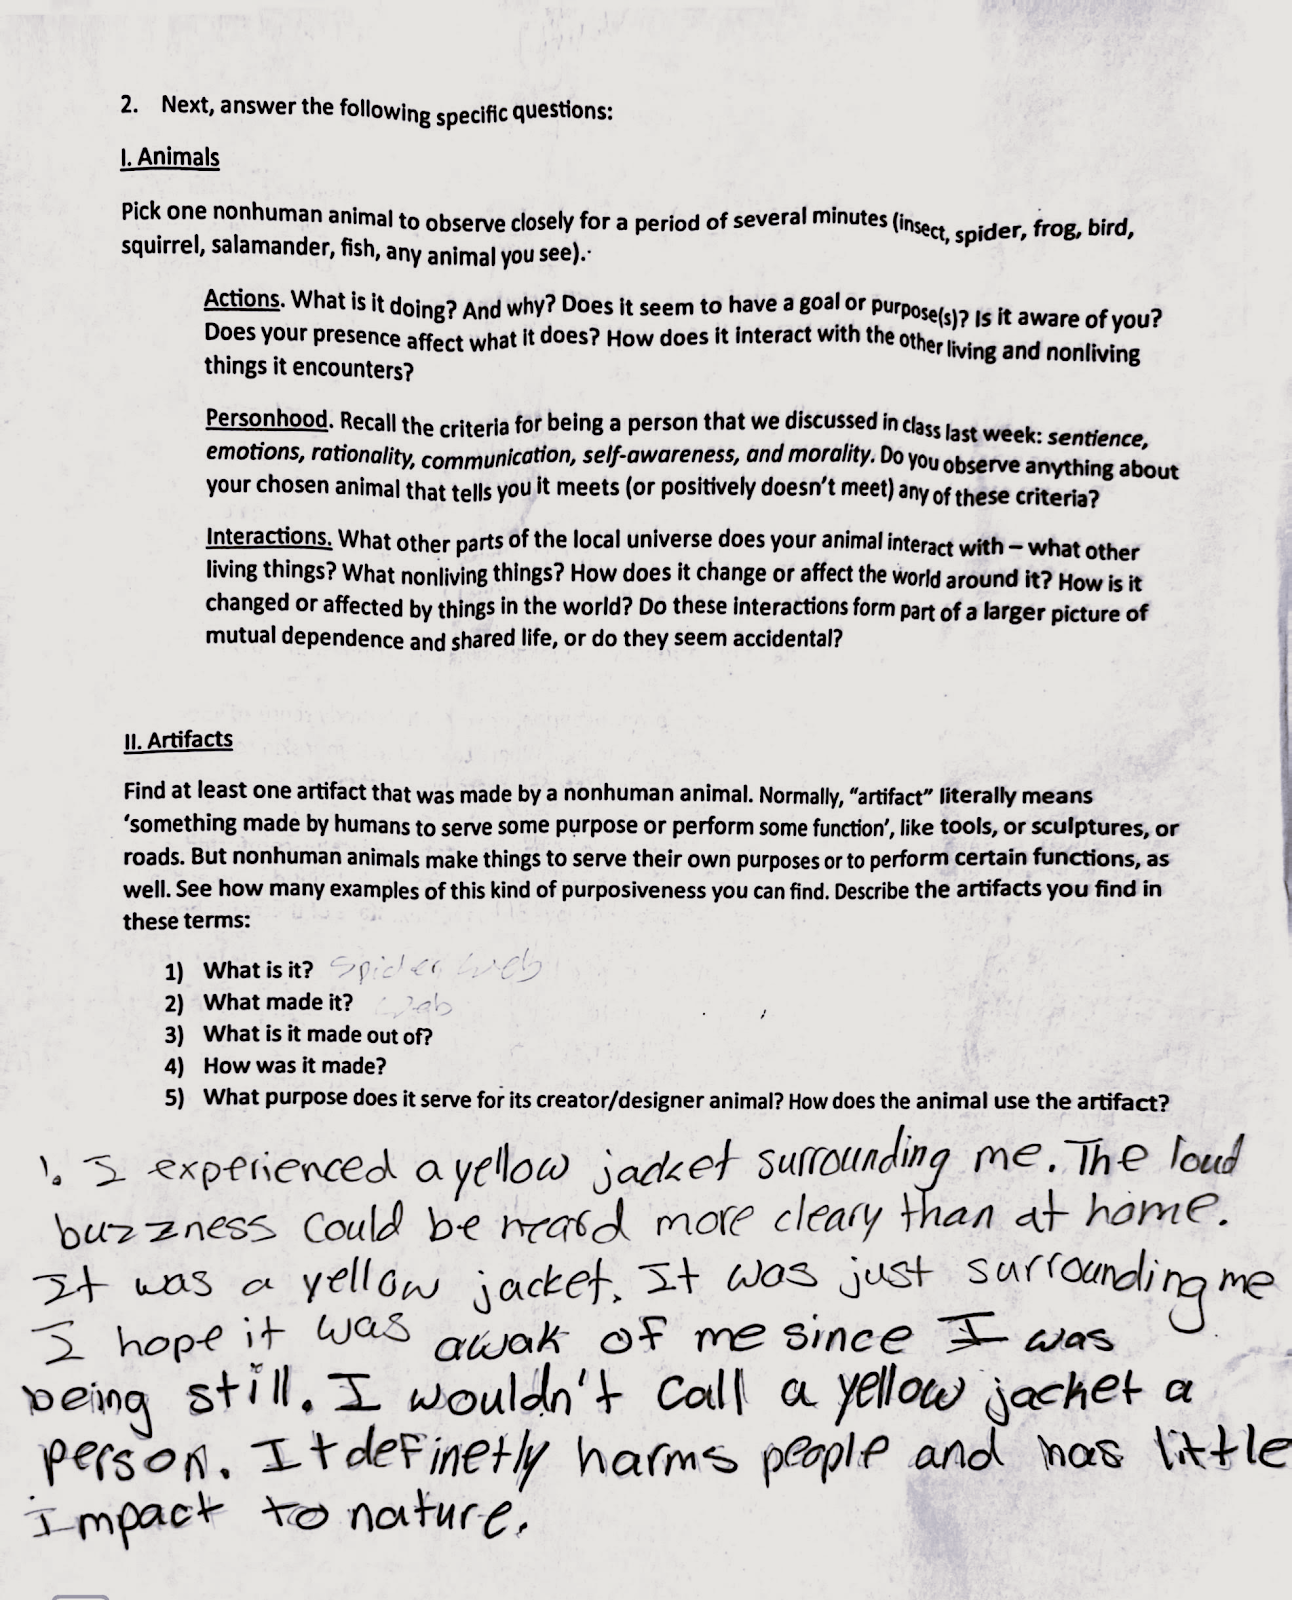 2. Next, answer the following specific questions:
I. Animals
Pick one nonhuman animal to observe closely for a period of several minutes (insect, spider, frog, bird,
squirrel, salamander, fish, any animal you see).
Actions. What is it doing? And why? Does it seem to have a goal or purpose(s)? Is it aware of you?
Does your presence affect what it does? How does it interact with the other living and nonliving
things it encounters?
Personhood. Recall the criteria for being a person that we discussed in class last week: sentience,
emotions, rationality, communication, self-awareness, and morality. Do you observe anything about
your chosen animal that tells you it meets (or positively doesn't meet) any of these criteria?
Interactions. What other parts of the local universe does your animal interact with – what other
living things? What nonliving things? How does it change or affect the world around it? How is it
changed or affected by things in the world? Do these interactions form part of a larger picture of
mutual dependence and shared life, or do they seem accidental?
II. Artifacts
Find at least one artifact that was made by a nonhuman animal. Normally, "artifact" literally means
'something made by humans to serve some purpose or perform some function', like tools, or sculptures, or
roads. But nonhuman animals make things to serve their own purposes or to perform certain functions, as
well. See how many examples of this kind of purposiveness you can find. Describe the artifacts you find in
these terms:
1) What is it? Spider web
2) What made it?
3) What is it made out of?
4) How was it made?
5) What purpose does it serve for its creator/designer animal? How does the animal use the artifact?
1. I experienced a yellow jacket surrounding me. The loud
buzzness could be heard more cleary than at home.
It was a yellow jacket. It was just surrounding me
I hope it was awak of me since I was
being still. I wouldn't call a yellow jacket a
person. It definetly harms people and has little
impact to nature.